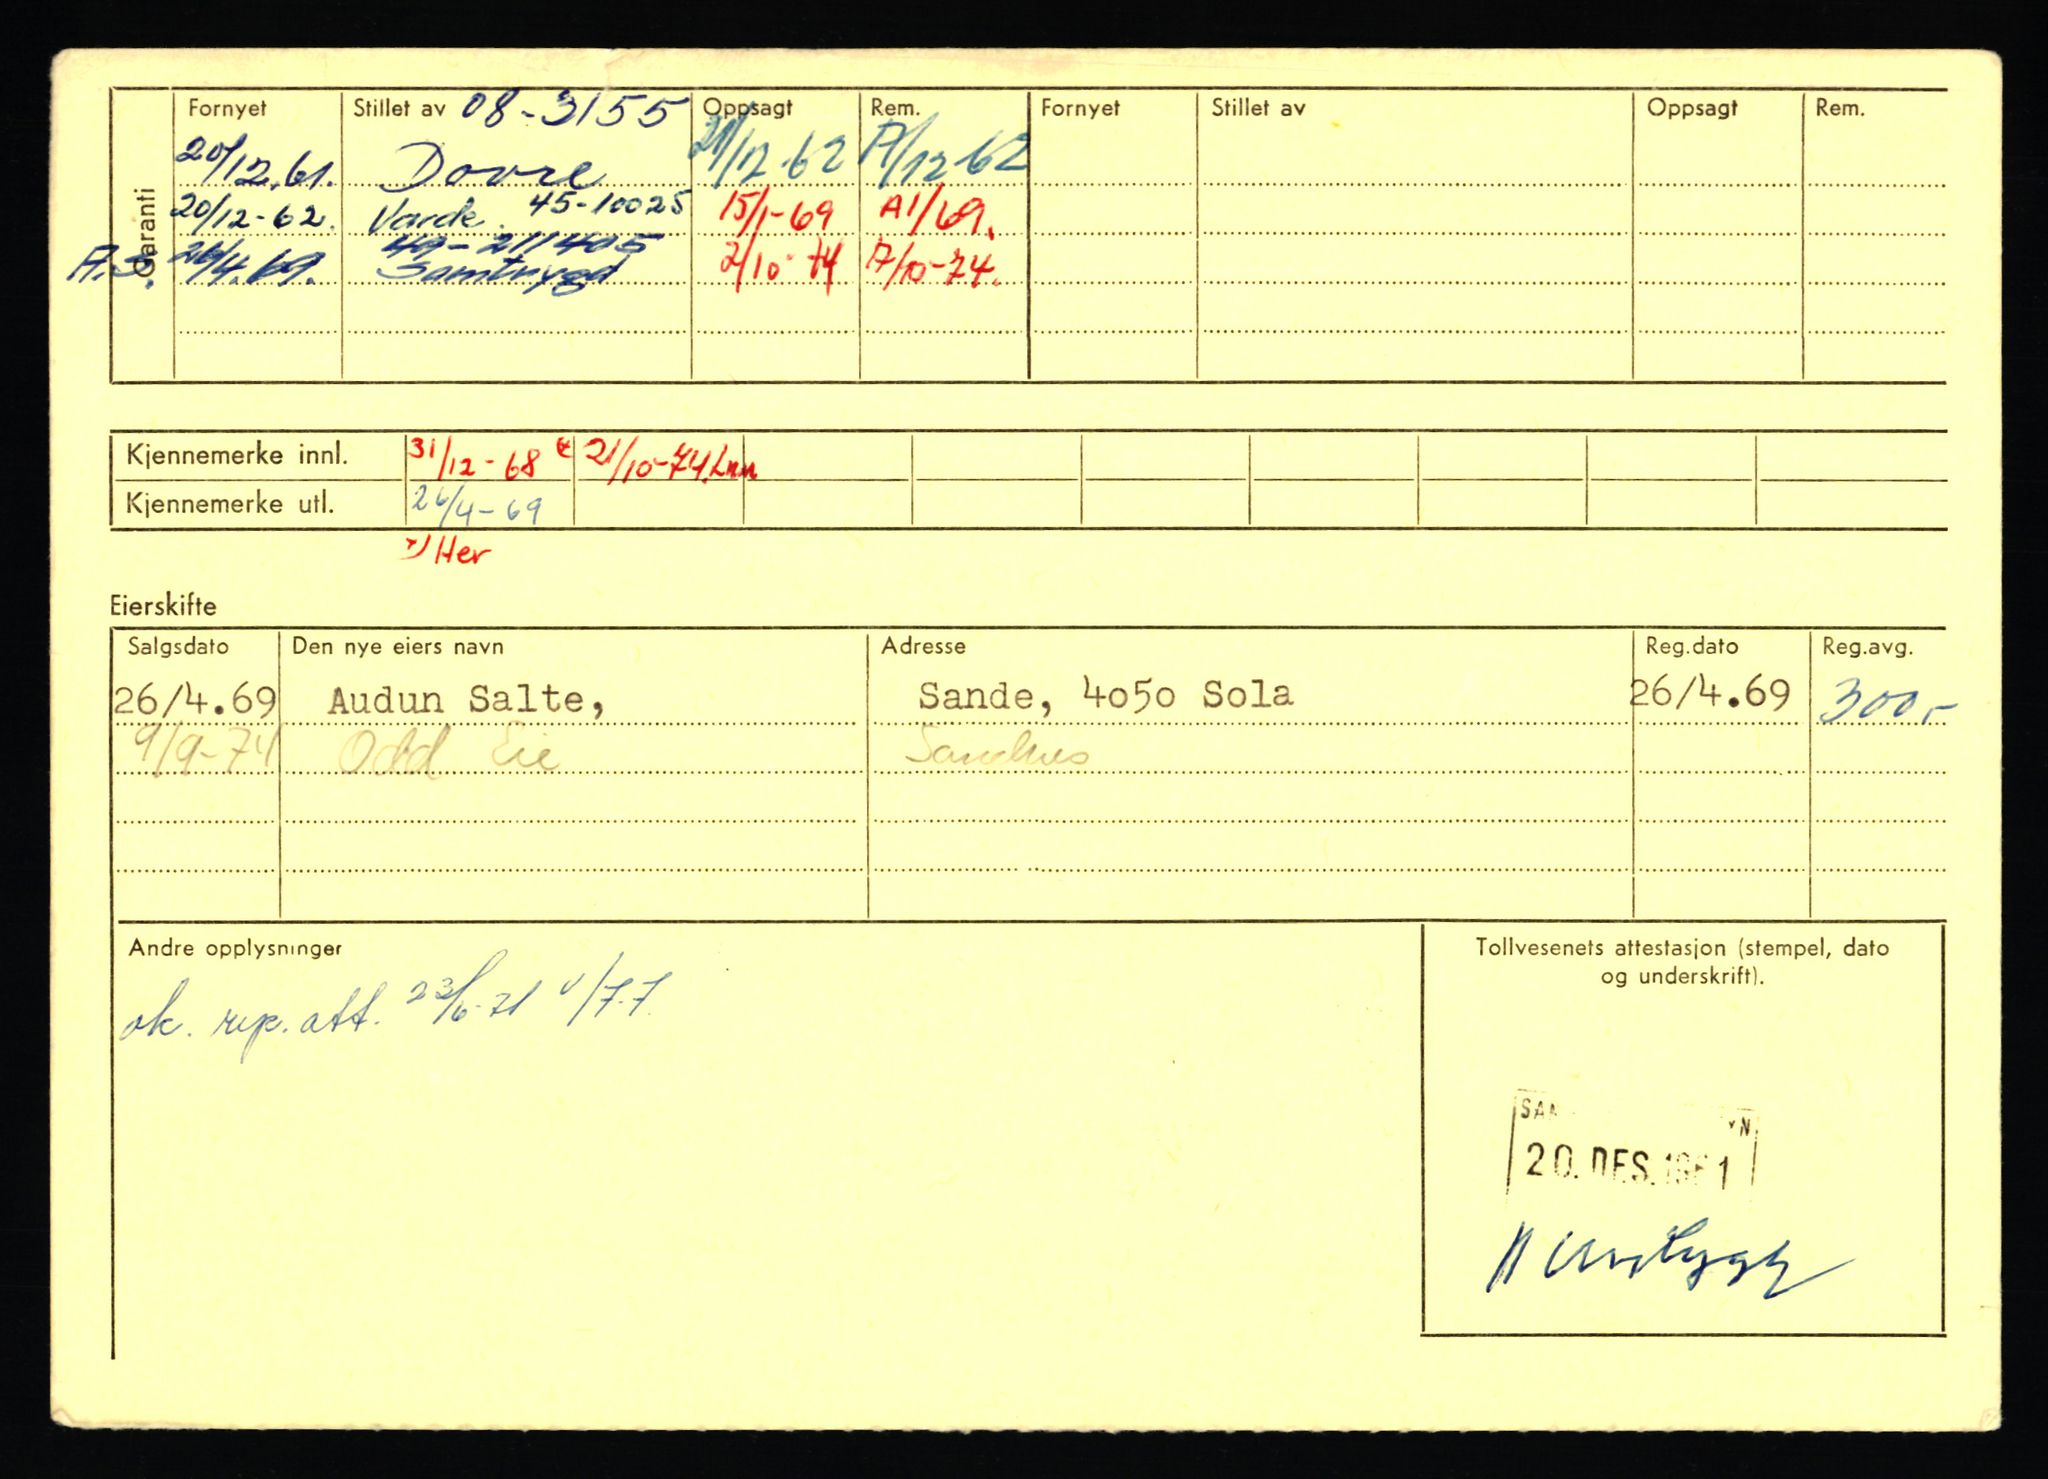 Garanti
Fornyet Stillet av 08-3155 Oppsagt Rem. Fornyet Stillet av Oppsagt Rem.
20/12.61. Dovre 21/12-62 A/12-62
20/12-62. Varde 45-10025 15/1-69 A1/69.
49-211405
A.S. 26/4.69. Samtrygd 2/10-74 A/10-74.
Kjennemerke innl. 31/12-68 21/10-74
Kjennemerke utl. 26/4-69
x) Her
Eierskifte
Salgsdato Den nye eiers navn Adresse Reg.dato Reg.avg.
26/4.69 Audun Salte, Sande, 4050 Sola 26/4.69 300,-
9/9-74 Odd Eie Sandnes
Andre opplysninger
ok. rep. att. 23/6-71
Tollvesenets attestasjon (stempel, dato
og underskrift).
20. DES. 1961